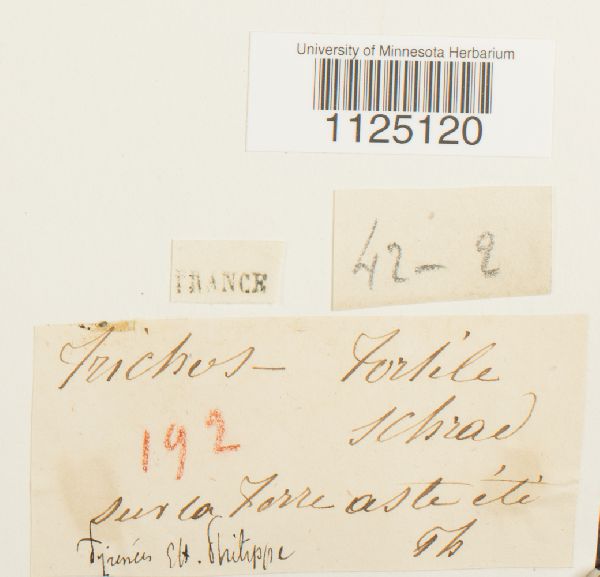 University of Minnesota Herbarium
1125120
FRANCE
42 - 2
Trichos - Tortile
Schrad
192
sur la Terre aste été
Th
Pyrenées Philippe